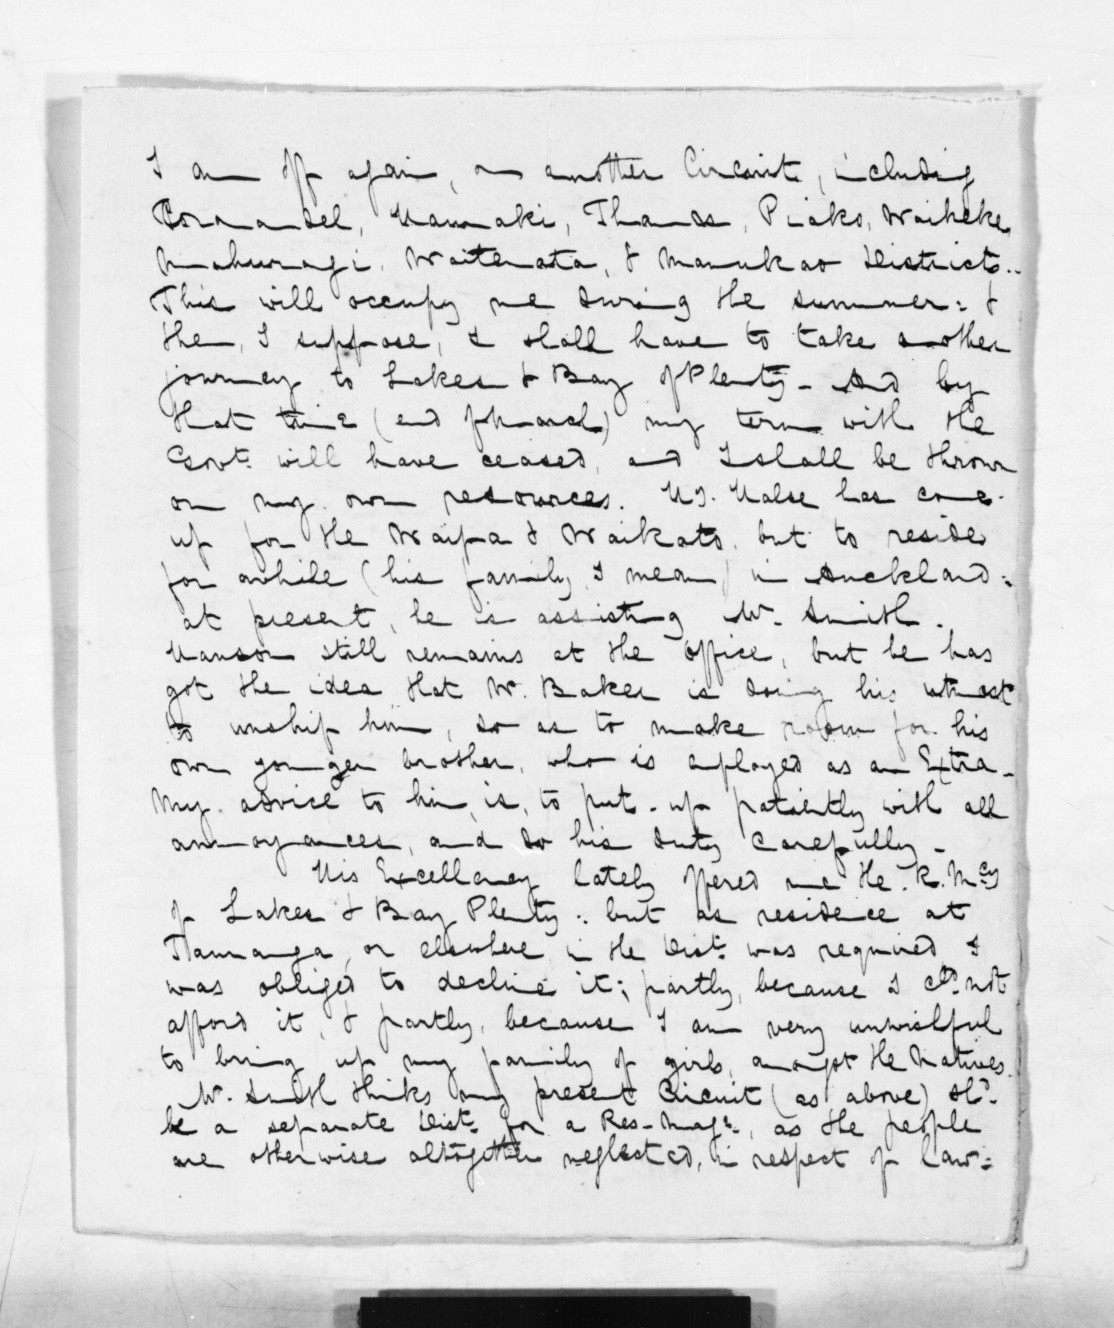 I am off again, on another Circuit, including
Coromandel, Hauraki, Thames, Piako, Waiheke,
Mahurangi, Waitemata, & Manukao Districts..
This will occupy me during the summer: &
then, I suppose, I shall have to take another
journey to Lakes & Bay of Plenty - And by
that time (end of March) my term with the
Govt. will have ceased, and I shall be thrown
on my own resources. Mr. Halse has come
up for the Waipa & Waikato, but to reside
for awhile (his family, I mean) in Auckland:
at present, he is assisting Mr. Smith.
Hanson still remains at the office, but he has
got the idea that Mr. Baker is doing his utmost
to unship him, so as to make room for his
own younger brother, who is employed as an Extra -
My advice to him, is, to put-up patiently with all
annoyances, and do his duty carefully -
His Excellency lately offered me the R. Mcy
of Lakes & Bay Plenty: but as residence at
Tauranga, or elsewhere in the Dist. was required I
was obliged to decline it; partly, because I cd. not
afford it, & partly, because I am very unwishful
to bring up my family of girls, amongst the Natives.
Mr. Smith thinks my present Circuit (as above) shd.
be a separate Dist. for a Res-Mage., as the people
are otherwise altogether neglected, in respect of law: